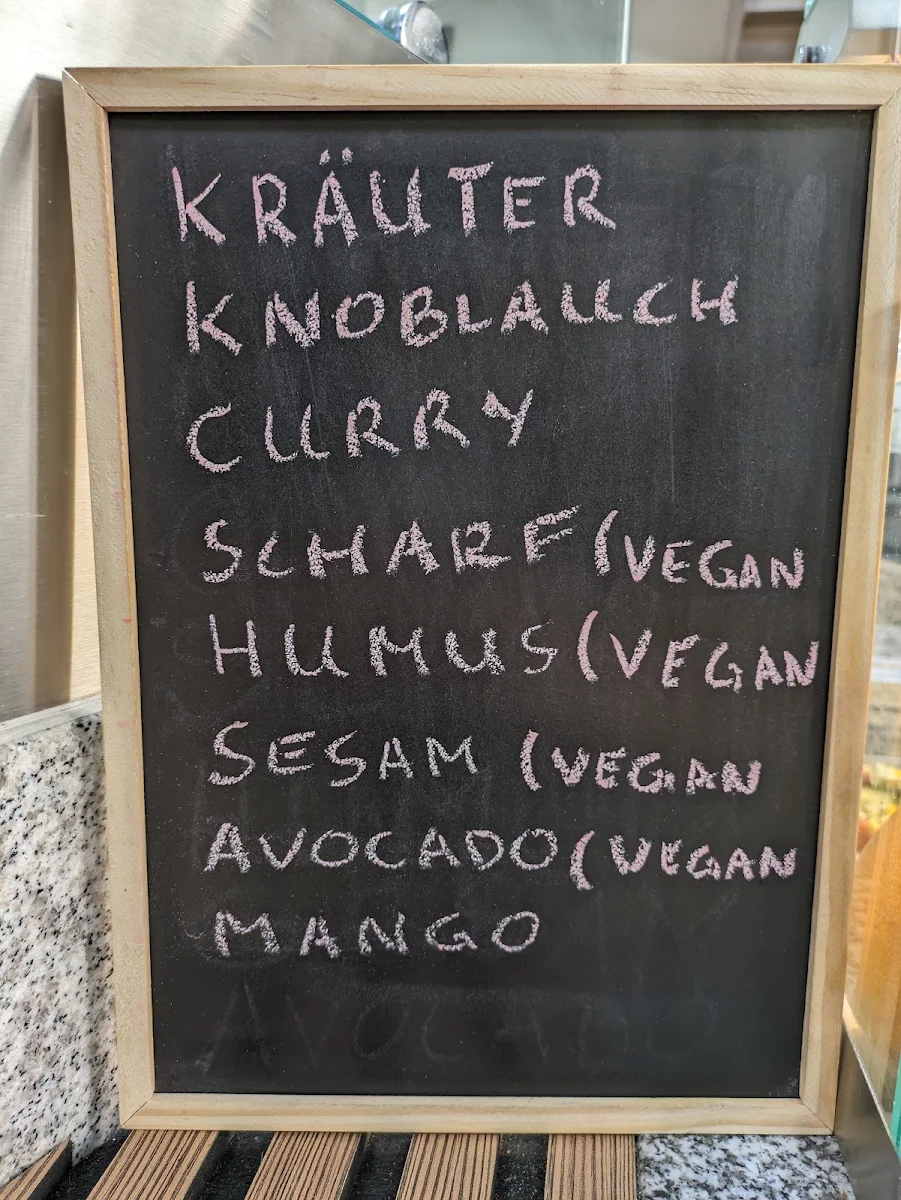 KRÄUTER
KNOBLAUCH
CURRY
SCHARF (VEGAN
HUMUS (VEGAN
SESAM (VEGAN
AVOCADO (VEGAN
MANGO
AVOCADO